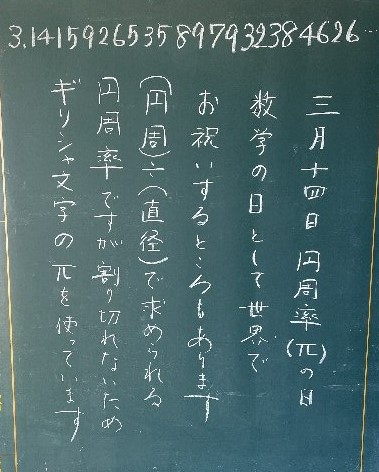 3.1415926535897932384626…
三月十四日 円周率(π)の日
数学の日として世界で
お祝いするところもあります
(円周)÷(直径)で求められる
円周率ですが割り切れないため
ギリシャ文字のπを使っています